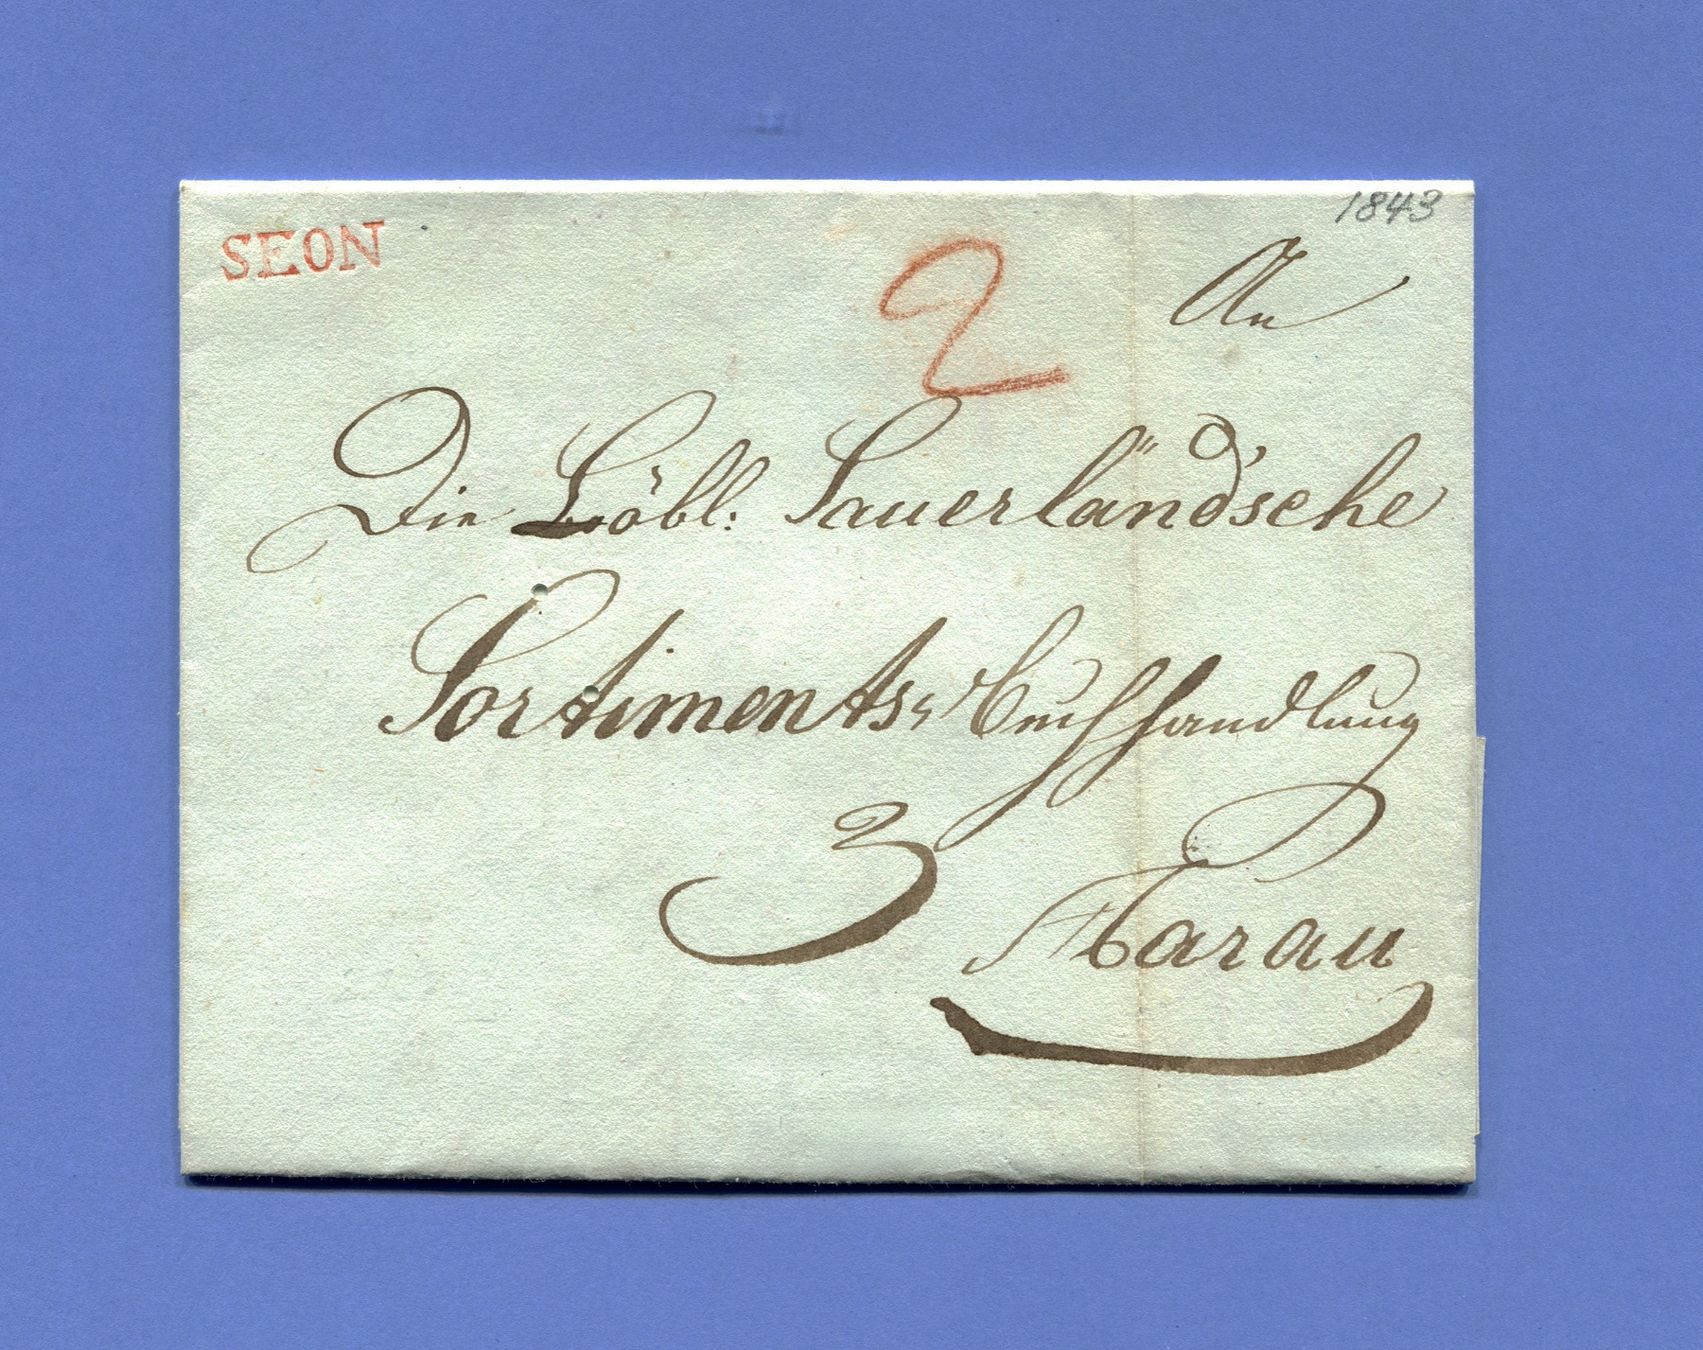 1843
SEON
2
An
Die Löbl: Sauerländ'sche
Sortiments-Buchhandlung
3
Aarau